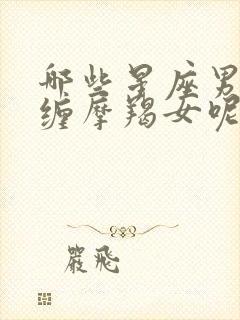 哪些星座男
缠摩羯女呢
嚴飛